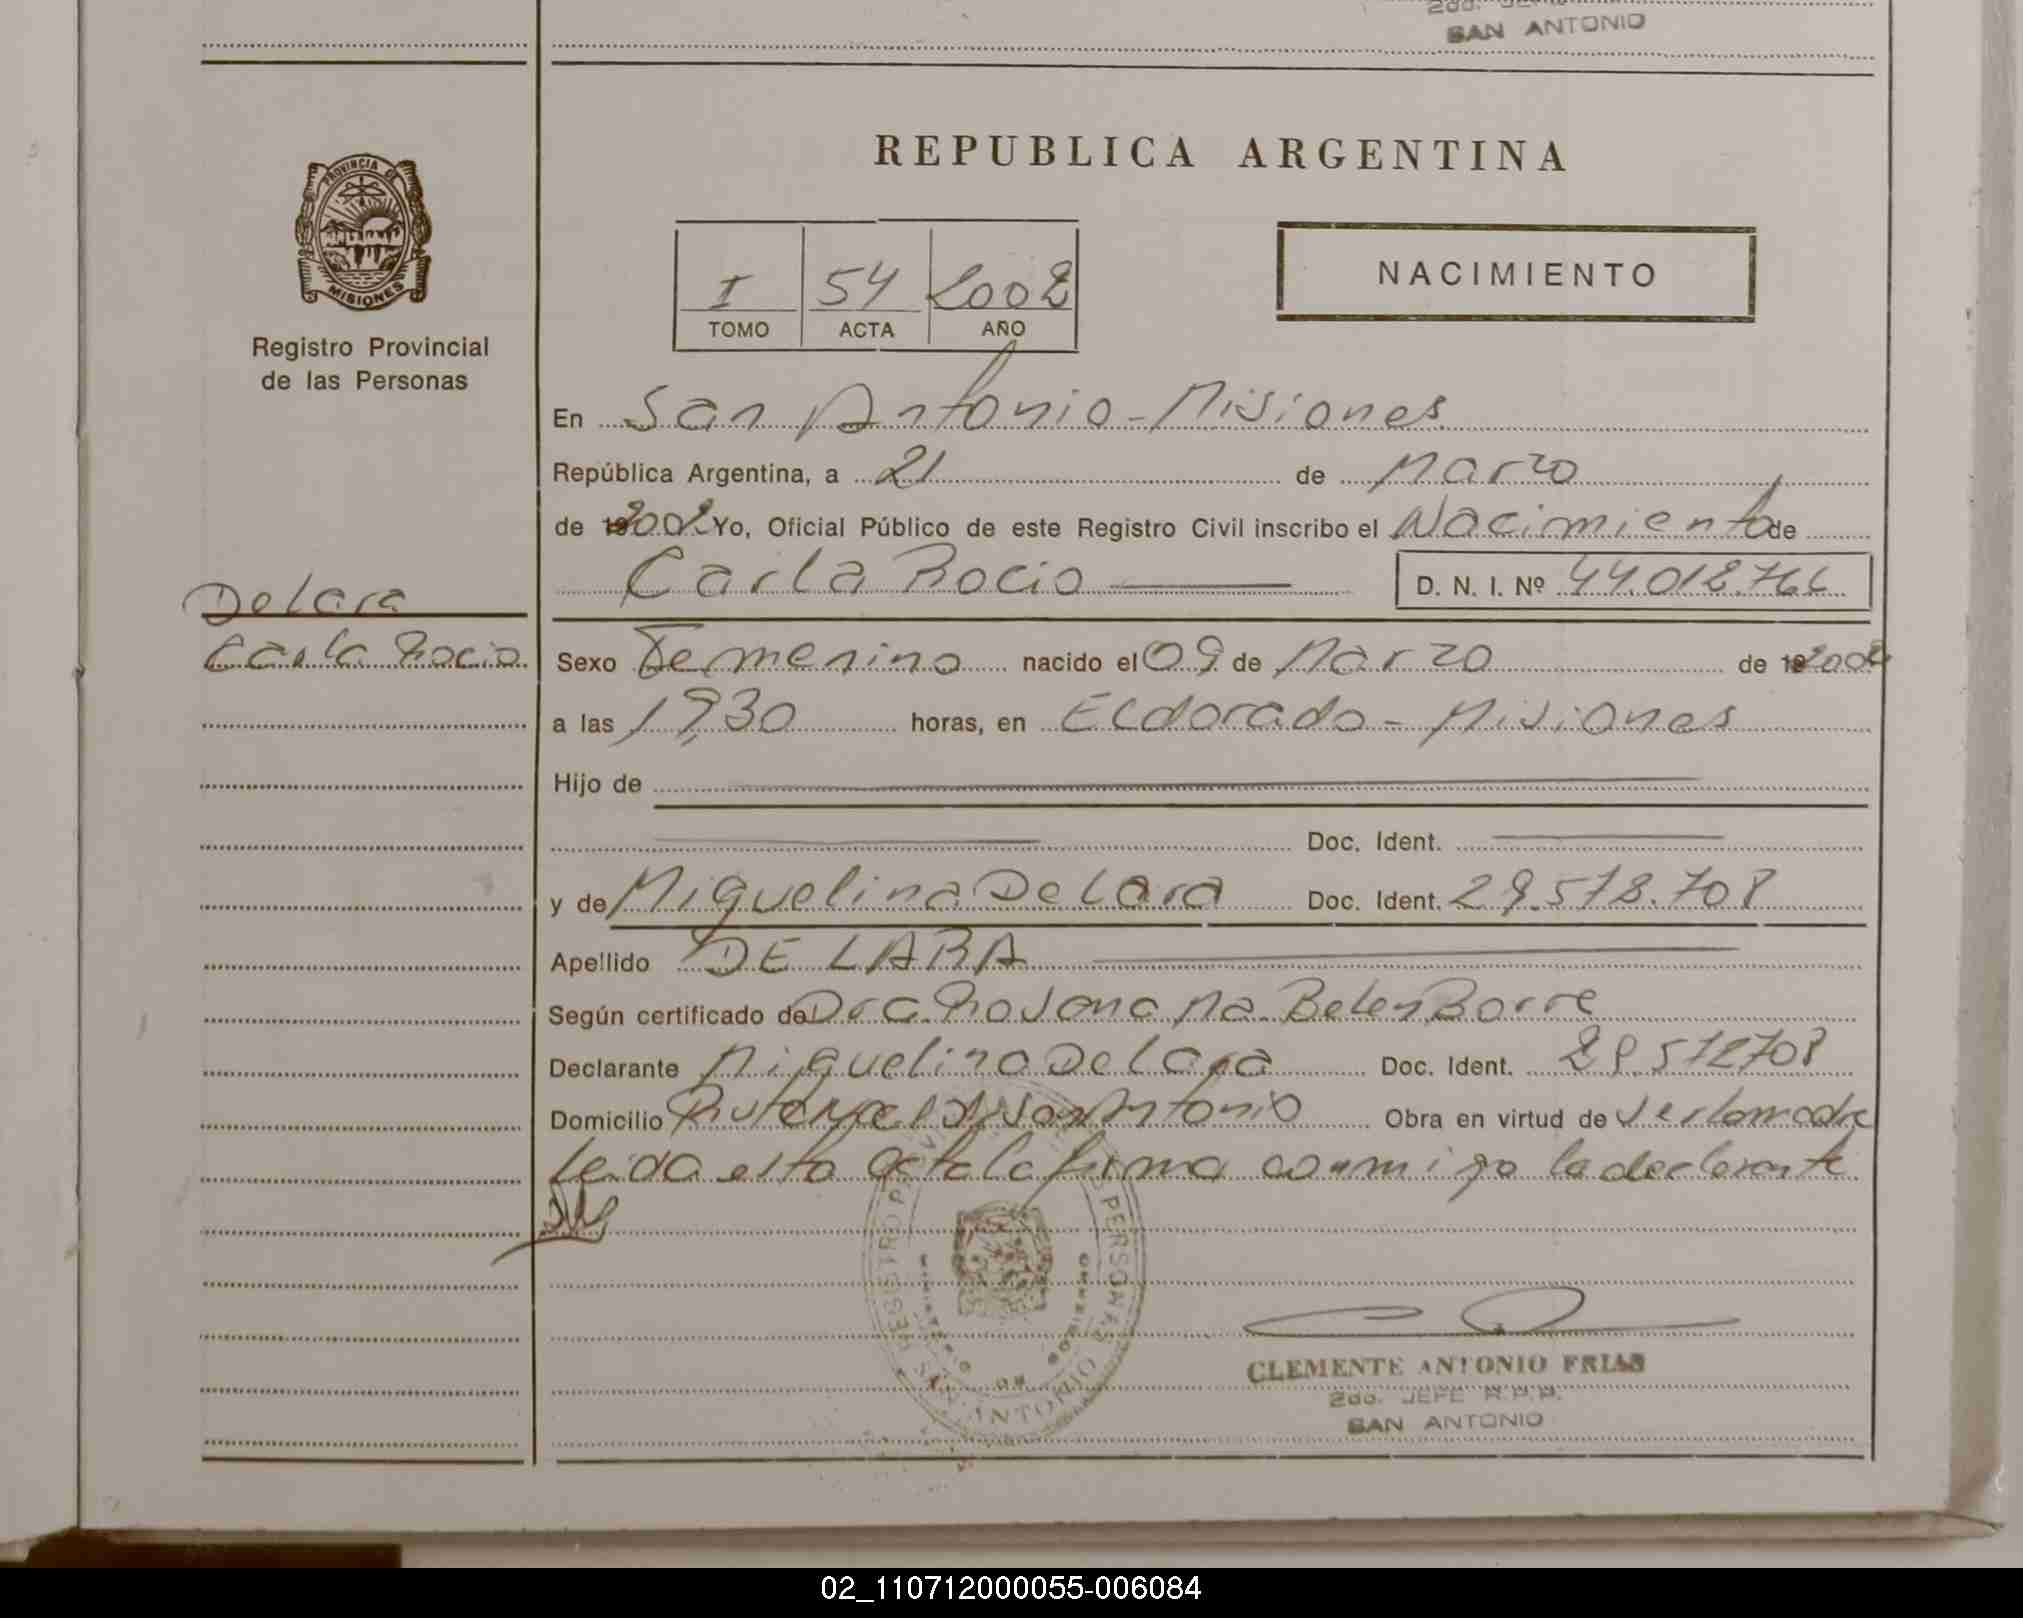 SAN ANTONIO
REPUBLICA ARGENTINA
PROVINCIA DE
MISIONES
Registro Provincial
de las Personas
I 54 2002
TOMO ACTA AÑO
NACIMIENTO
En San Antonio - Misiones
República Argentina, a 21 de Marzo
de 2002 Yo, Oficial Público de este Registro Civil inscribo el Nacimiento de
Carla Rocio D. N. I. Nº 44.018.766
De Lara
Carla Rocio
Sexo Femenino nacido el 09 de Marzo de 2002
a las 19,30 horas, en Eldorado - Misiones
Hijo de
Doc. Ident.
y de Miguelina De Lara Doc. Ident. 29.578.708
Apellido DE LARA
Según certificado de Dra. Rosana Ma. Belen Borre
Declarante Miguelina De Lara Doc. Ident. 29.578708
Domicilio San Antonio Obra en virtud de ser la madre
Leida esta acta la firma conmigo la declarante
CLEMENTE ANTONIO FRIAS
2do. JEFE R.P.P.
SAN ANTONIO
02_110712000055-006084